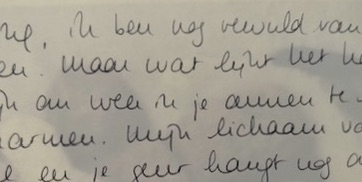 , ik ben nog vervuld van
en. Maar wat lijkt het
om weer in je armen te
armen. Mijn lichaam
en je geur hangt nog